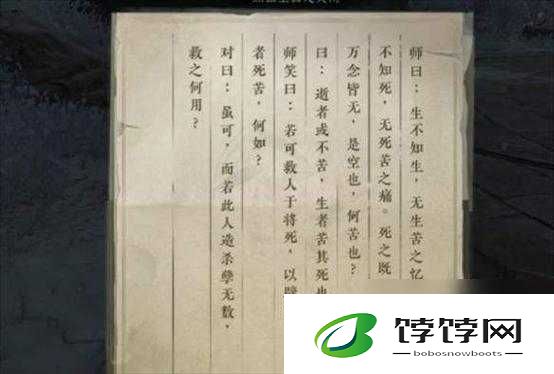 师曰：生不知生，无生苦之忆
不知死，无死苦之痛。死之既
万念皆无，是空也，何苦也？
曰：逝者或不苦，生者苦其死也
师笑曰：若可救人于将死，以
者死苦，何如？
对曰：虽可，而若此人造杀孽无数，
救之何用？
饽饽网
bobosnowboots